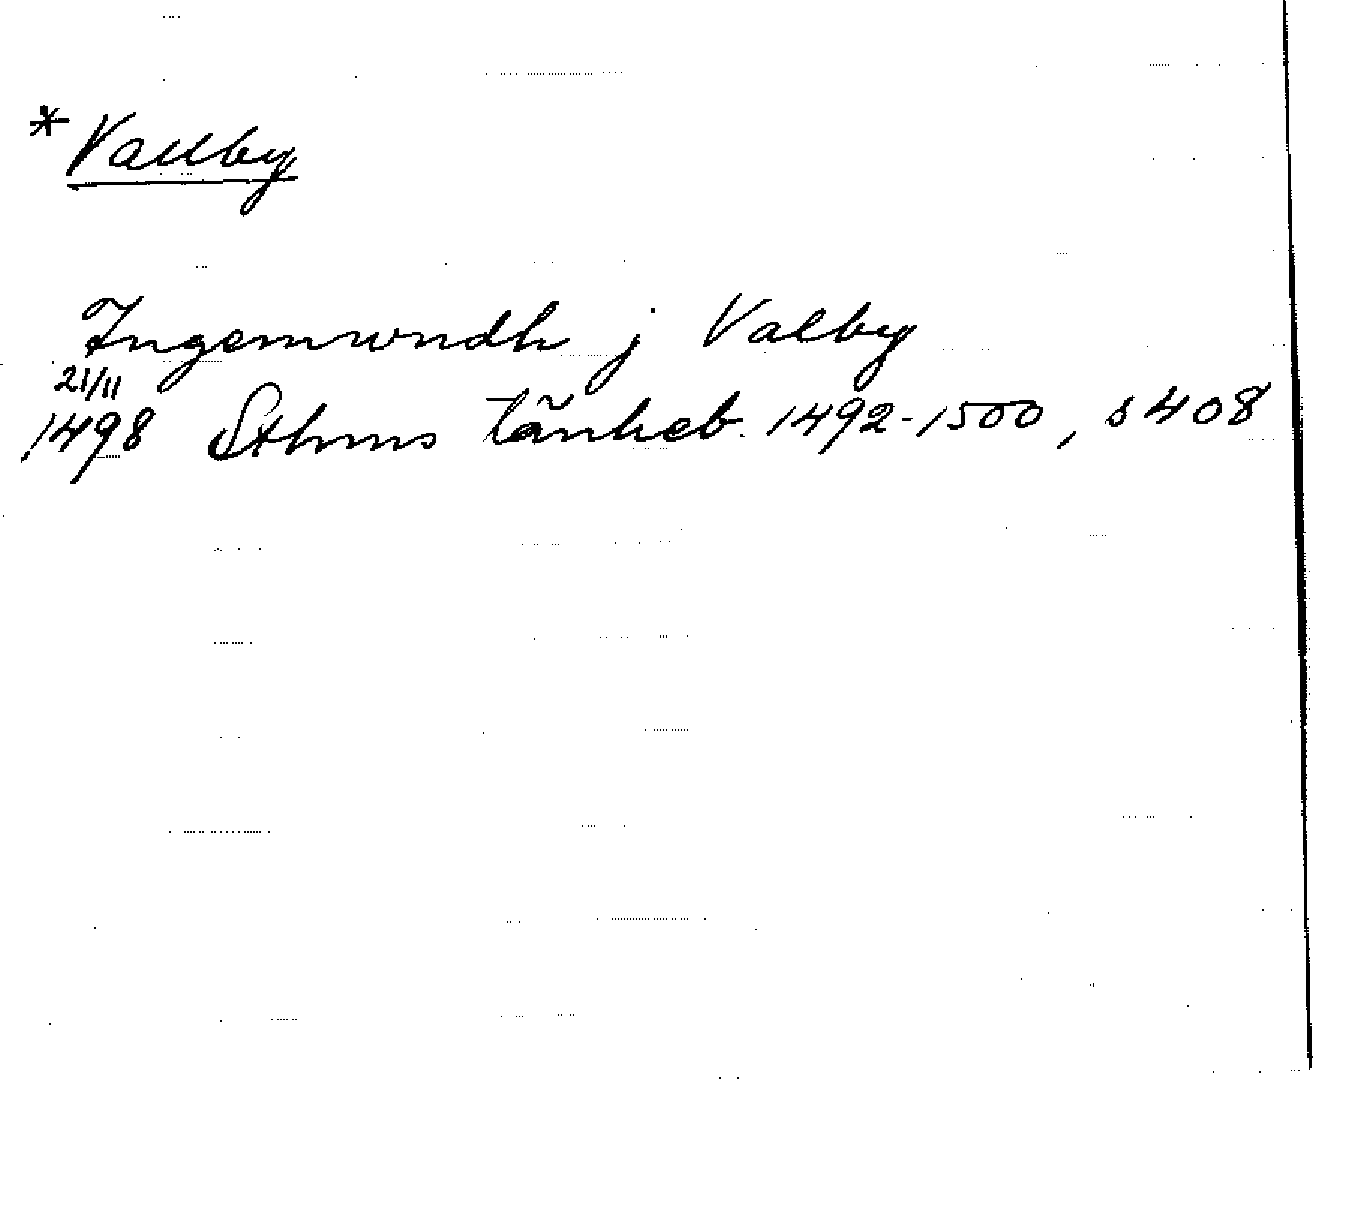 * Vallby
Ingemundh j Valby
21/11
1498 Sthms tänkeb. 1492-1500, s 408